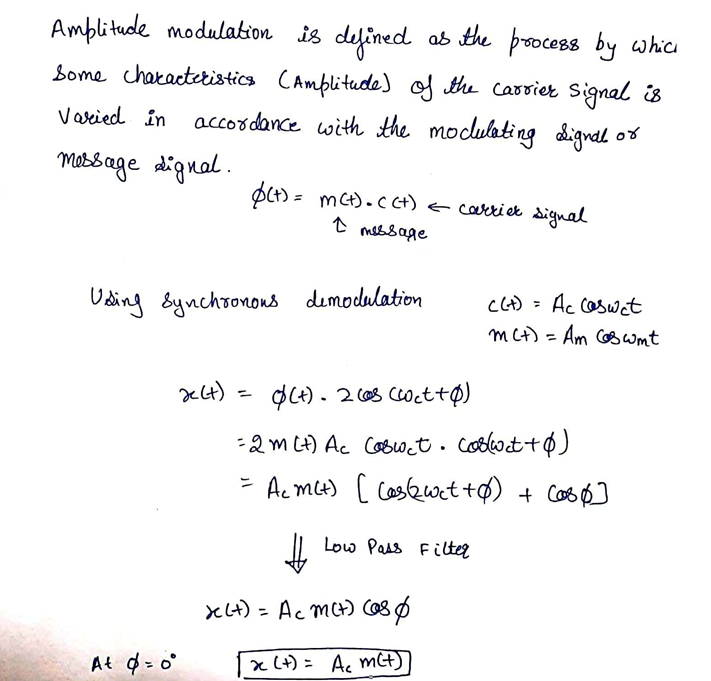 Amplitude modulation is defined as the process by whic
Some characteristics (Amplitude) of the carrier signal is
Varied in accordance with the modulating signal or
message signal.
ϕ(t) = m(t) . c(t) ← carrier signal
↑ message
Using synchronous demodulation c(t) = Ac cosωct
m(t) = Am cosωmt
x(t) = ϕ(t) . 2 cos(ωct+ϕ)
= 2 m(t) Ac cosωct . cos(ωct+ϕ)
= Ac m(t) [ cos(2ωct+ϕ) + cosϕ]
⇓ Low Pass Filter
x(t) = Ac m(t) cosϕ
At ϕ = 0° x(t) = Ac m(t)